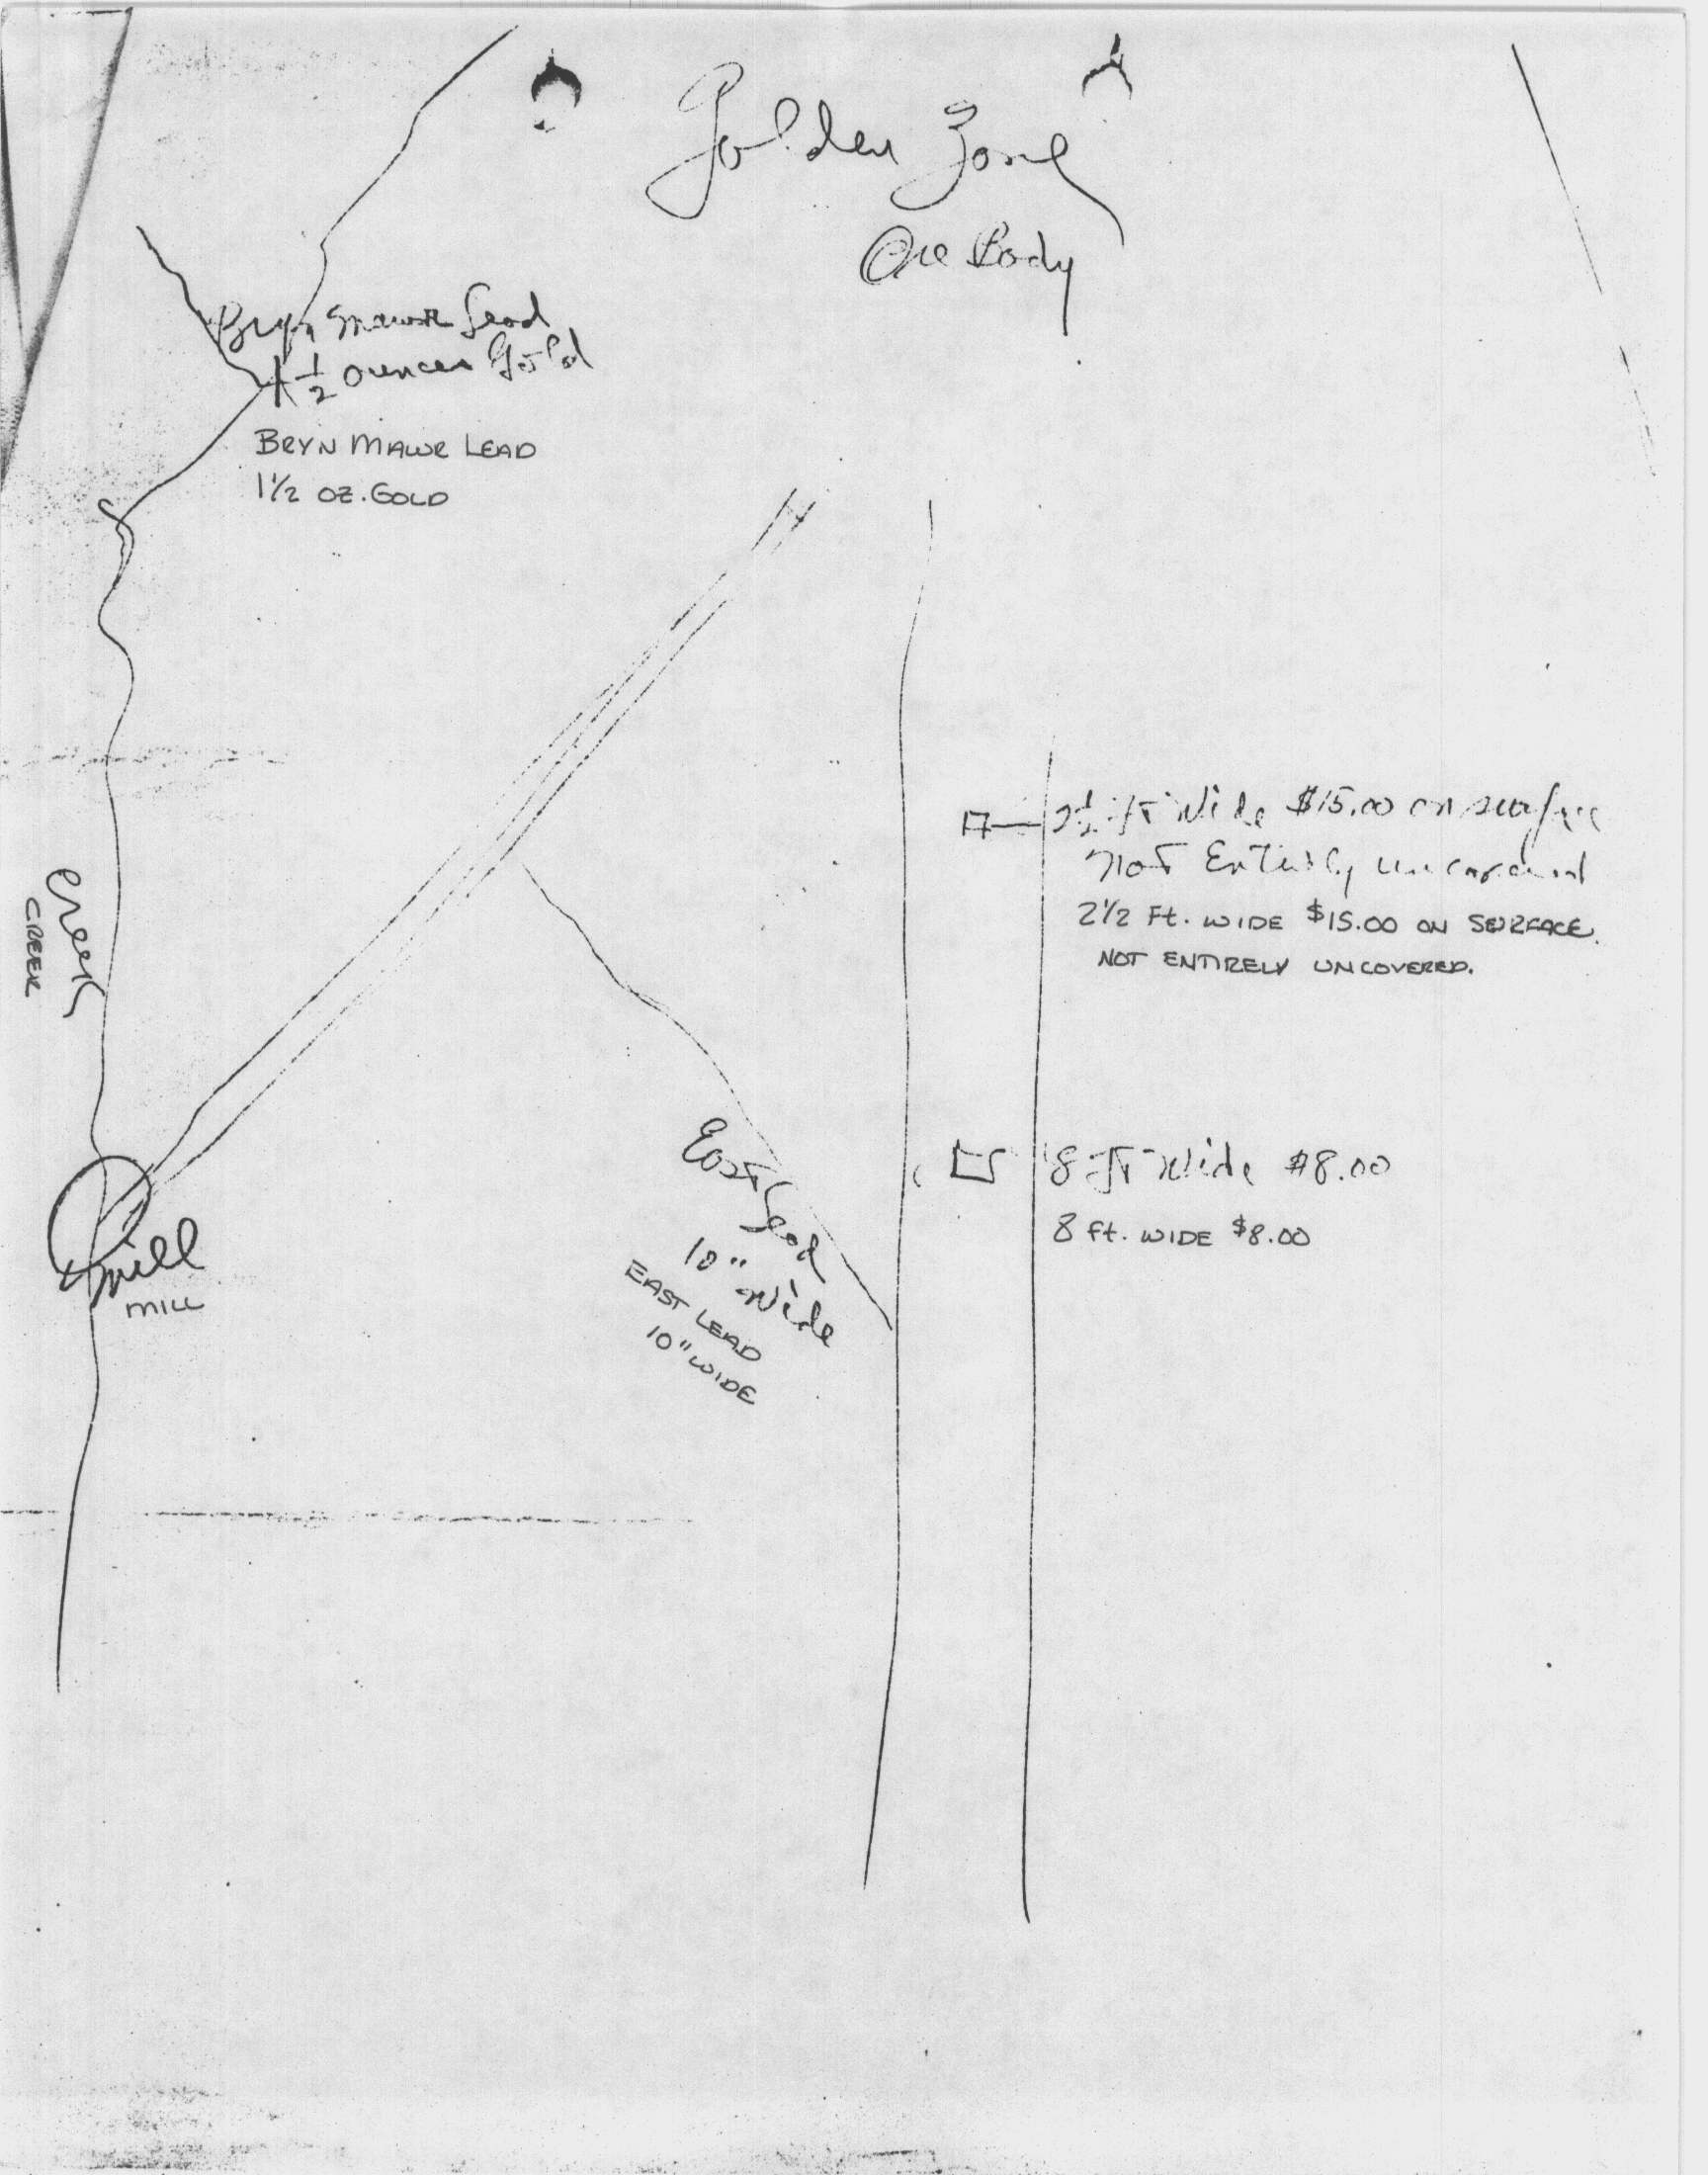 Golden Zone
Ore Body
Bryn Mawr Lead
1 1/2 ounces Gold
BRYN MAWR LEAD
1 1/2 OZ. GOLD
2 1/2 ft Wide $15.00 on surface
not Entirely uncovered
2 1/2 Ft. WIDE $15.00 ON SURFACE.
NOT ENTIRELY UNCOVERED.
Creek
CREEK
8 ft Wide $8.00
8 ft. WIDE $8.00
East Lead
10" Wide
EAST LEAD
10" WIDE
Mill
MILL